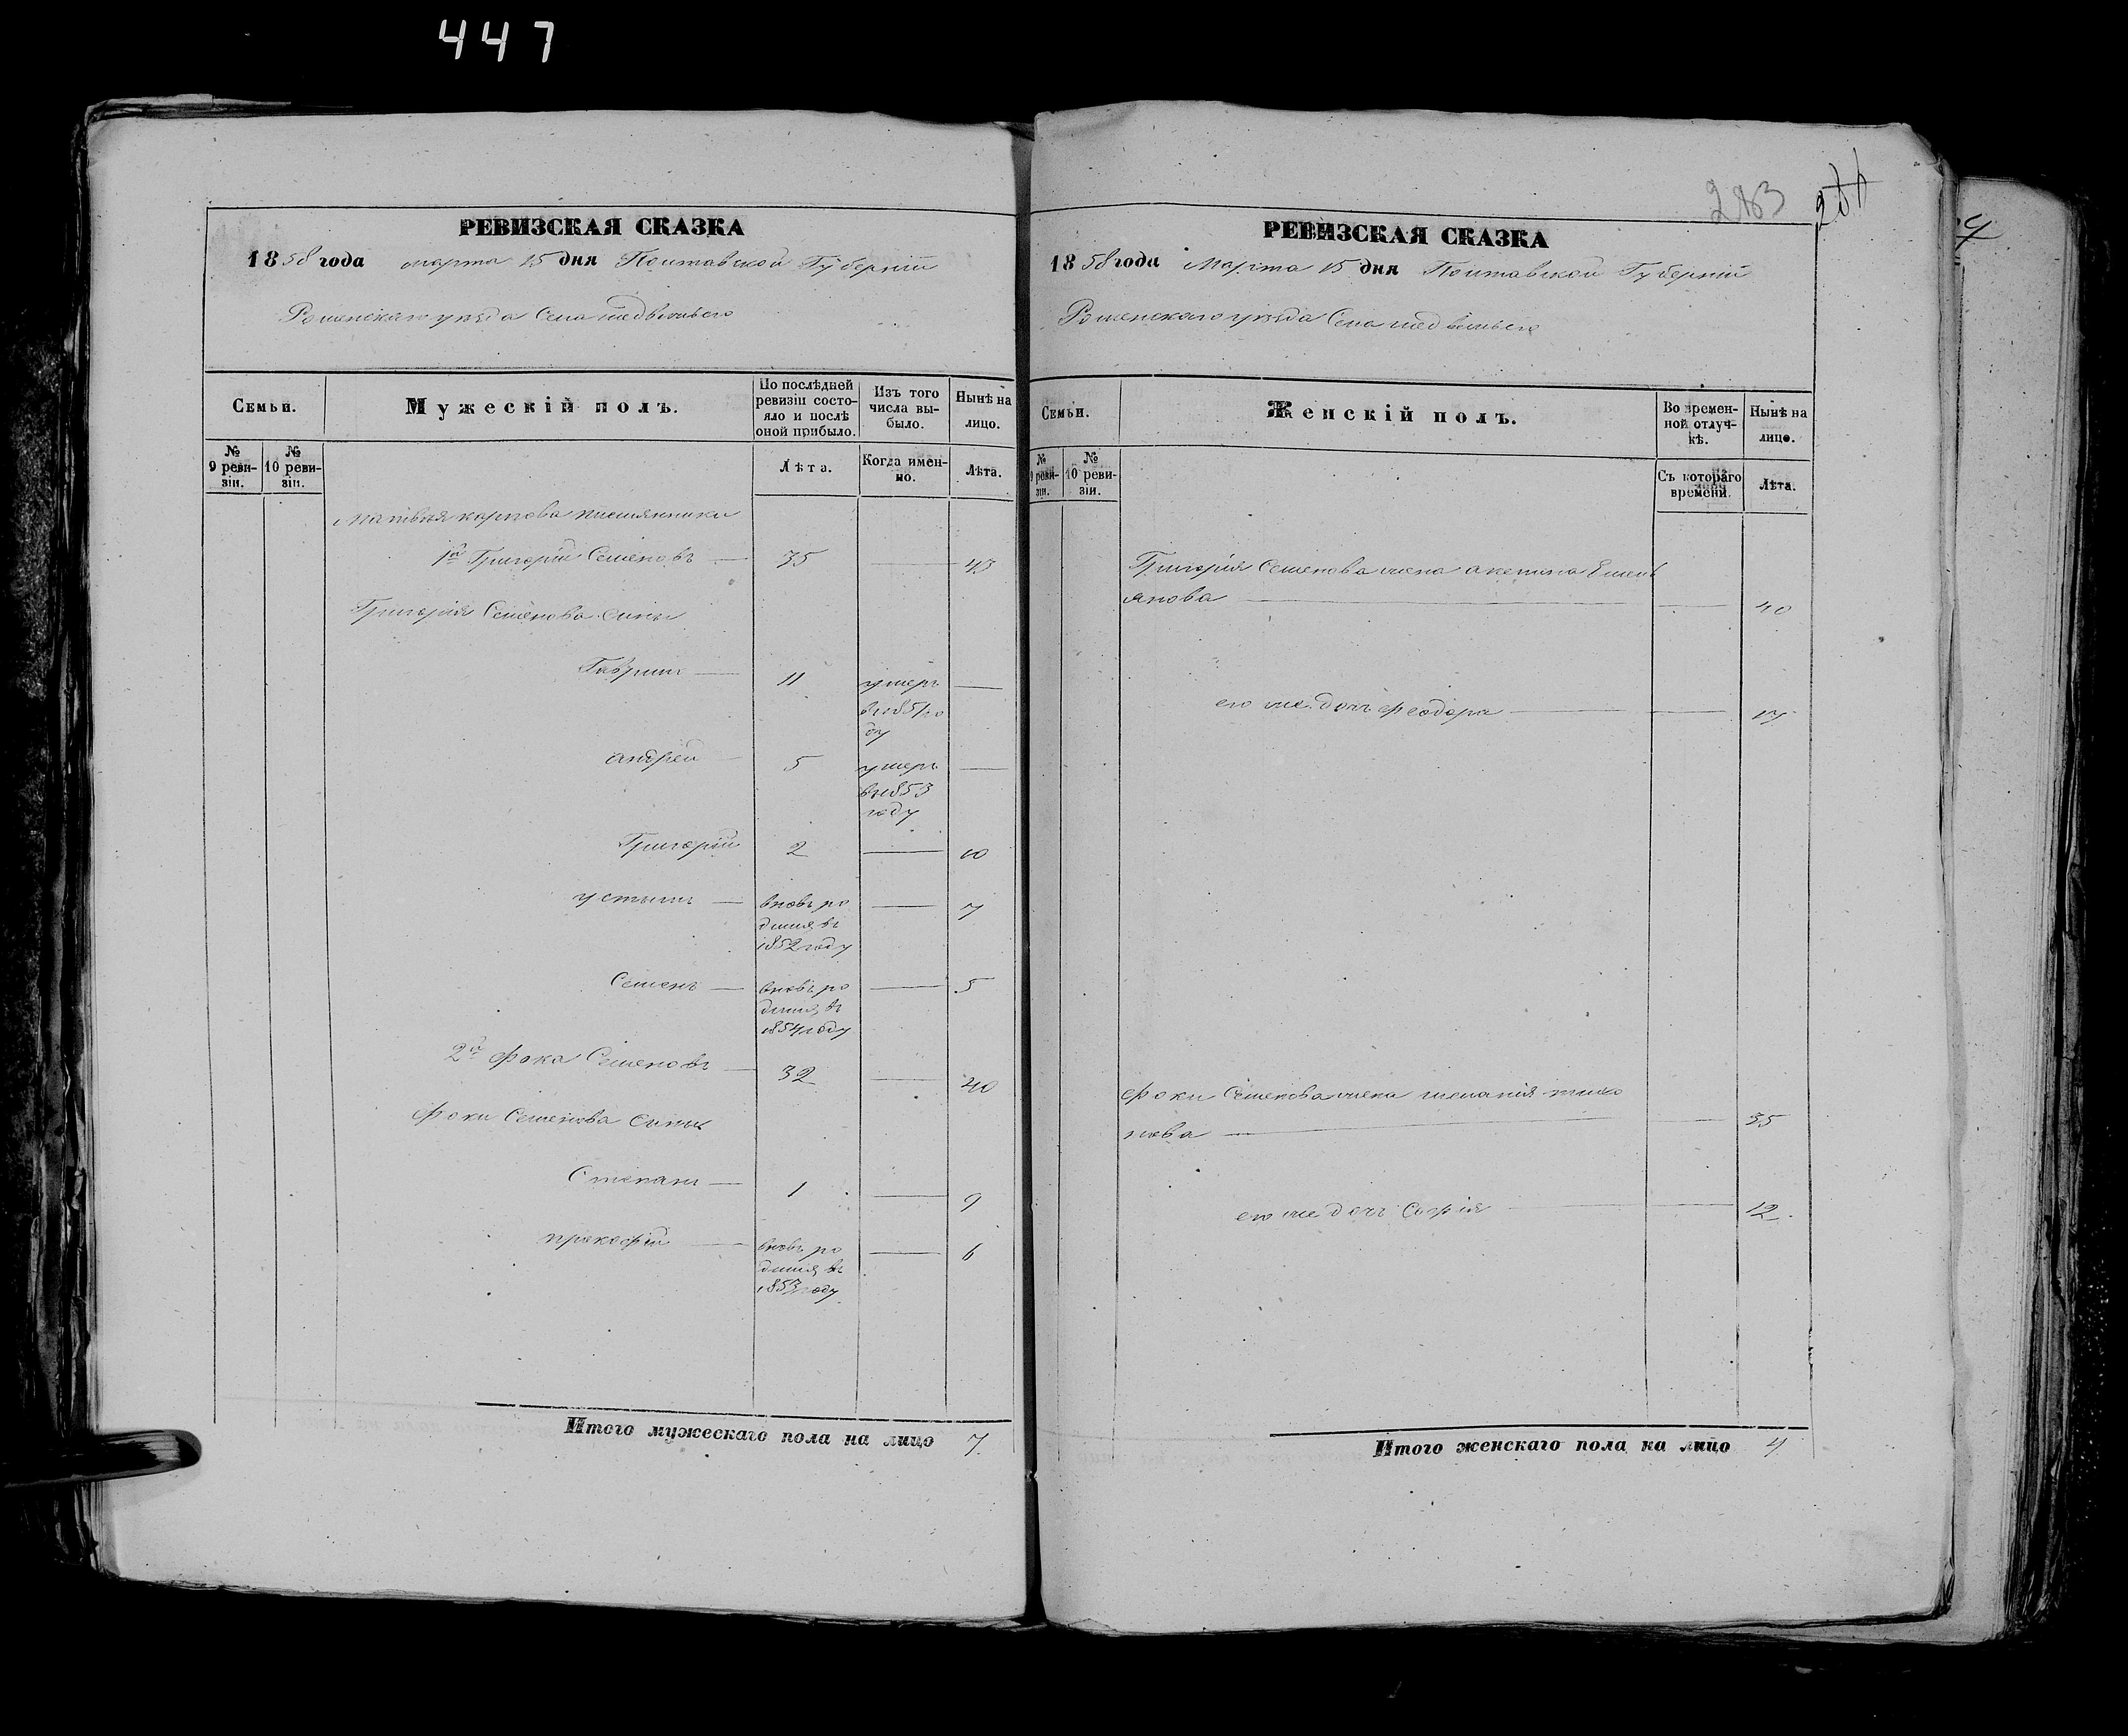 447
РЕВИЗСКАЯ СКАЗКА
1858 года марта 15 дня Полтавской Губерніи
Роменскаго уезда Села медвежьего
Семьи.
Мужескій полъ.
По послѣдней ревизіи состояло и послѣ оной прибыло.
Изъ того числа выбыло.
Нынѣ на лицо.
№ 9 ревизіи.
№ 10 ревизіи.
Лѣта.
Когда именно.
Лѣта.
матвея карпова племянники
1й Григорій Семеновъ — 35 — 43
Григорія Семенова сины
Гаврилъ — 11 умеръ —
въ 1851 го
ду
андрей — 5 умеръ —
въ 1853
году
Григорій 2 — 10
устымъ — вновь ро — 7
дился въ
1852 году
Семенъ — вновь ро — 5
дился въ
1854 году
2й фока Семеновъ — 32 — 40
фоки Семенова сины
Степанъ — 1 — 9
прокофій — вновь ро — 6
дился въ
1853 году
Итого мужескаго пола на лицо 7
283
РЕВИЗСКАЯ СКАЗКА
1858 года Марта 15 дня Полтавской Губерніи
Роменскаго уезда Села медвежьего
Семьи.
Женскій полъ.
Во временной отлучкѣ.
Нынѣ на лицо.
№ 9 ревизіи.
№ 10 ревизіи.
Съ котораго времени.
Лѣта.
Григорія Семенова жена Емель
янова — — 40
его же дочь феодора — — 17
фоки Семенова жена
— — 35
его же дочь Софія — — 12
Итого женскаго пола на лицо 4